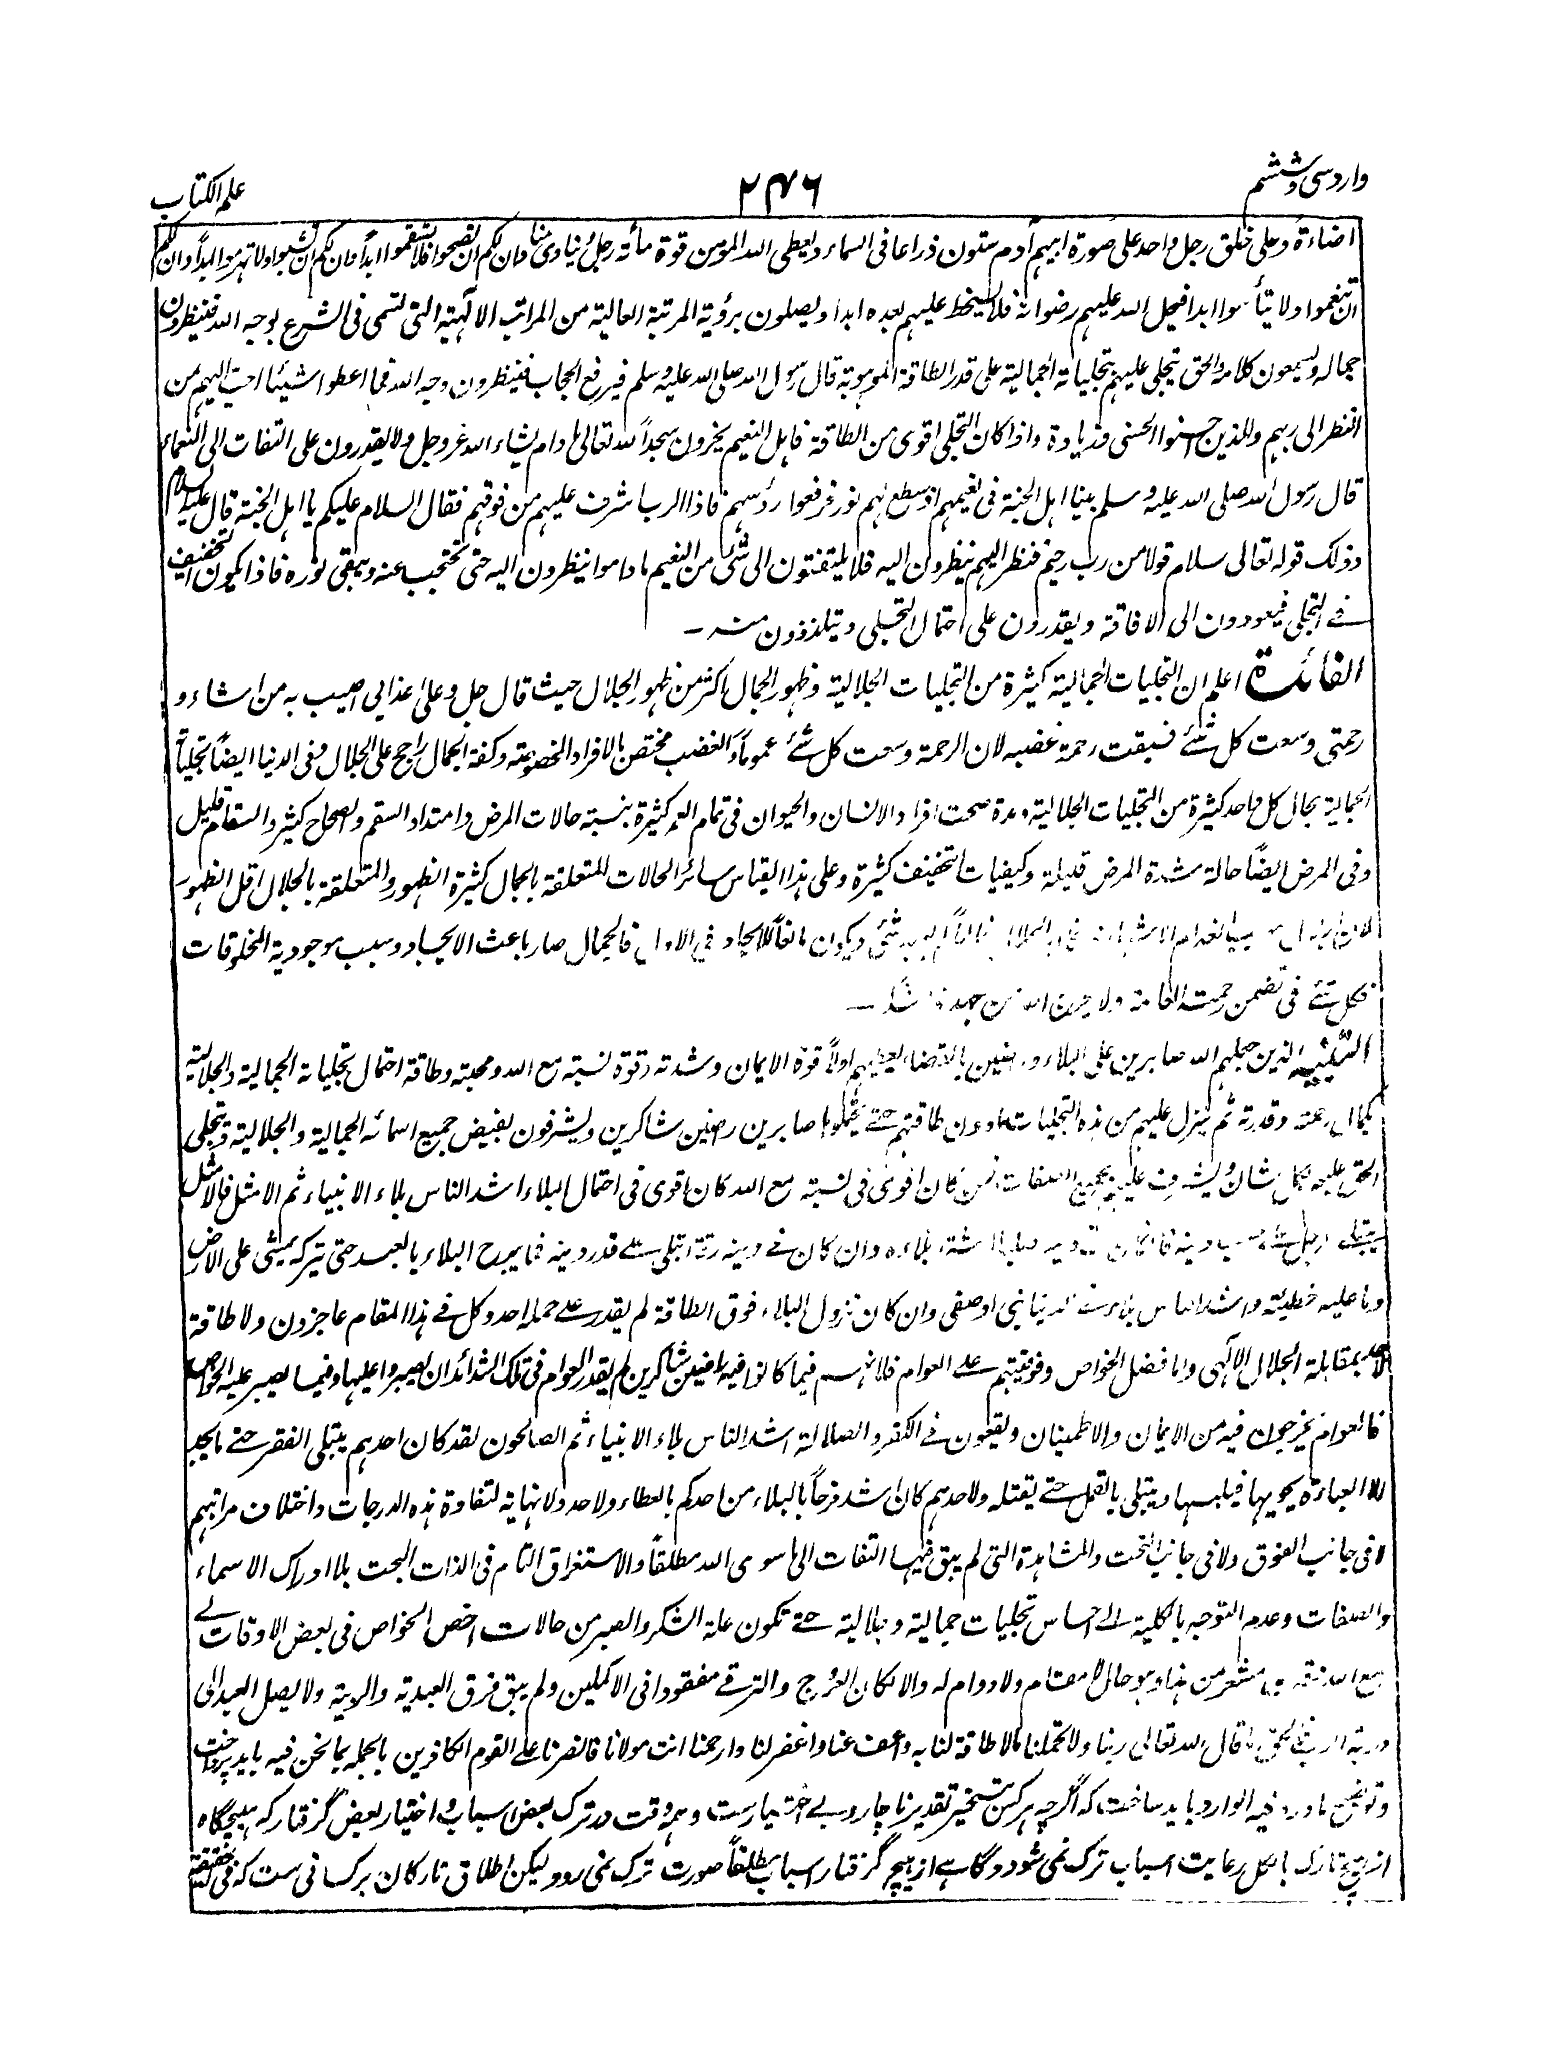 وارد سی و ششم
۲۴۶
علم الکتاب
اضاءة وعلی خلق رجل واحد علی صورة ابیهم آدم ستون ذراعا فی السماء ویعطی الله المومن قوة مأته رجل وینادی مناد ان لکم ان تصحوا فلا تسقموا ابداً وان لکم ان تشبوا ولا تهرموا ابداً وان لکم
ان تنعموا ولا تیأسوا ابدا فیحل الله علیهم رضوانه فلا یسخط علیهم بعده ابدا ویصلون برؤیة المرتبة العالیة من المراتب الالٰهیة التی تسمی فی الشرع بوجه الله فینظرون
جماله ویسمعون کلامه والحق یتجلی علیهم بتجلیاته الجمالیة علی قدر الطاقة الموهوبة قال رسول الله صلی الله علیه وسلم فیرفع الحجاب فینظرون وجه الله فما اعطوا شیئا احب الیهم من
النظر الی ربهم وللذین احسنوا الحسنی وزیادة واذا کان التجلی اقوی من الطاقة فاهل النعیم یخرون سجداً لله تعالی مادام یشاء الله عز وجل ولا یقدرون علی التفات الی النعماء
قال رسول الله صلی الله علیه وسلم بینا اهل الجنة فی نعیمهم اذ سطع لهم نور فرفعوا رؤسهم فاذا الرب اشرف علیهم من فوقهم فقال السلام علیکم یا اهل الجنة قال علیه السلام
وذلک قوله تعالی سلام قولا من رب رحیم فنظر الیهم ینظرون الیه فلا یلتفتون الی شئ من النعیم ماداموا ینظرون الیه حتی تحتجب عنه ویبقی نوره فاذا یکون التخفیف
فی التجلی فیعودون الی الافاقة ویقدرون علی احتمال التجلی ویتلذذون منه ـ
الفائدة اعلم ان التجلیات الجمالیة کثیرة من التجلیات الجلالیة وظهور الجمال اکثر من ظهور الجلال حیث قال جل وعلی عذابی اصیب به من اشاء و
رحمتی وسعت کل شئ فسبقت رحمة غضبه لان الرحمة وسعت کل شئ عموماً والغضب مختص بالافراد المخصوصة وکفة الجمال راجح علی الجلال وفی الدنیا ایضاً تجلیاته
الجمالیة بحال کل واحد کثیرة من التجلیات الجلالیة ومدة صحت افراد الانسان والحیوان فی تمام العمر کثیرة بنسبة حالات المرض وامتداد السقم والصحاح کثیر والسقام قلیل
وفی المرض ایضاً حالة شدة المرض قلیلة وکیفیات التخفیف کثیرة وعلی هذا القیاس سائر الحالات المتعلقة بالجمال کثیرة الظهور والمتعلقة بالجلال اقل الظهور
شئ ویکون مانعاً للایجاد فی الاول فالجمال صار باعث الایجاد وسبب موجودیة المخلوقات
فکل شئ فی تضمن رحمته العامة ولا
التنبیه الذین جعلهم الله صابرین علی البلاء و بالقضاء یعطیهم اولاً قوة الایمان وشدته وقوة نسبة مع الله ومحبته وطاقة احتمال تجلیاته الجمالیة والجلالیة
بکمال رحمته وقدرته ثم ینزل علیهم من هذه التجلیات مادون طاقتهم حتی یتحملوها صابرین راضین شاکرین ویشرفون بفیض جمیع اسمائه الجمالیة والجلالیة ویتجلی
الحق علیهم بکل شان ویشرف علیهم بجمیع الصفات فمن کان اقوی فی نسبة مع الله کان اقوی فی احتمال البلاء اشد الناس بلاء الانبیاء ثم الامثل فالامثل
یبتلی الرجل علی حسب دینه فان کان بلاءه وان کان فی دینه رقة ابتلی علی قدر دینه فما یبرح البلاء بالعبد حتی یترکه یمشی علی الارض
وما علیه خطیئة واشد الناس بلاء فی الدنیا نبی او صفی وان کان نزول البلاء فوق الطاقة لم یقدر علی حمله احد وکل فی هذا المقام عاجزون ولا طاقة
لاحد بمقابلة الجلال الالٰهی وانما فضل الخواص وفوقیتهم علی العوام فلانهم فیما کانوا فیه راضین شاکرین لم یقدر العوام فی تلک الشدائد ان یصبروا علیها وفیما یصبر علیه الخواص
فالعوام یخرجون فیه من الایمان والاطمینان ویقعون فی الکفر والضلالة اشد الناس بلاء الانبیاء ثم الصالحون لقد کان احدهم یبتلی الفقر حتی مایجد
الا العباءة یحویها فیلبسها ویبتلی بالقمل حتی یقتله ولاحدهم کان اشد فرحاً بالبلاء من احدکم بالعطاء ولا حد ولا نهایة لتفاوة هذه الدرجات واختلاف مراتبهم
لا فی جانب الفوق ولا فی جانب التحت والمشاهدة التی لم یبق فیها التفات الی ماسوی الله مطلقاً والاستغراق التام فی الذات البحت بلا ادراک الاسماء
والصفات وعدم التوجه بالکلیة الی احساس تجلیات جمالیة وجلالیة حتی تکون علة الشکر والصبر من حالات اخص الخواص فی بعض الاوقات لی
مع الله وقت مشعر من هذا وهو حال لا مقام ولا دوام له والا لکان العروج والترقی مفقودا فی الاکملین ولم یبق فرق العبدیة والربیة ولا یصل العبد الی
قال الله تعالی ربنا ولا تحملنا مالا طاقة لنا به واعف عنا واغفر لنا وارحمنا انت مولانا فانصرنا علی القوم الکافرین بالجمله بما نحن فیه باید پرداخت
وتوضیح ماورد فیه الوارد باید ساخت که اگرچه هر کس بتسخیر تقدیر ناچار و بے اختیارست و همه وقت در ترک بعض اسباب و اختیار بعض گرفتار که هیچگاه
از هیچ تارک بالکل رعایت اسباب ترک نمی شود و گاهے از هیچ گرفتار اسباب مطلقاً صورت ترک نمی رود لیکن اطلاق تارکان بر کسانی ست که فی الحقیقة